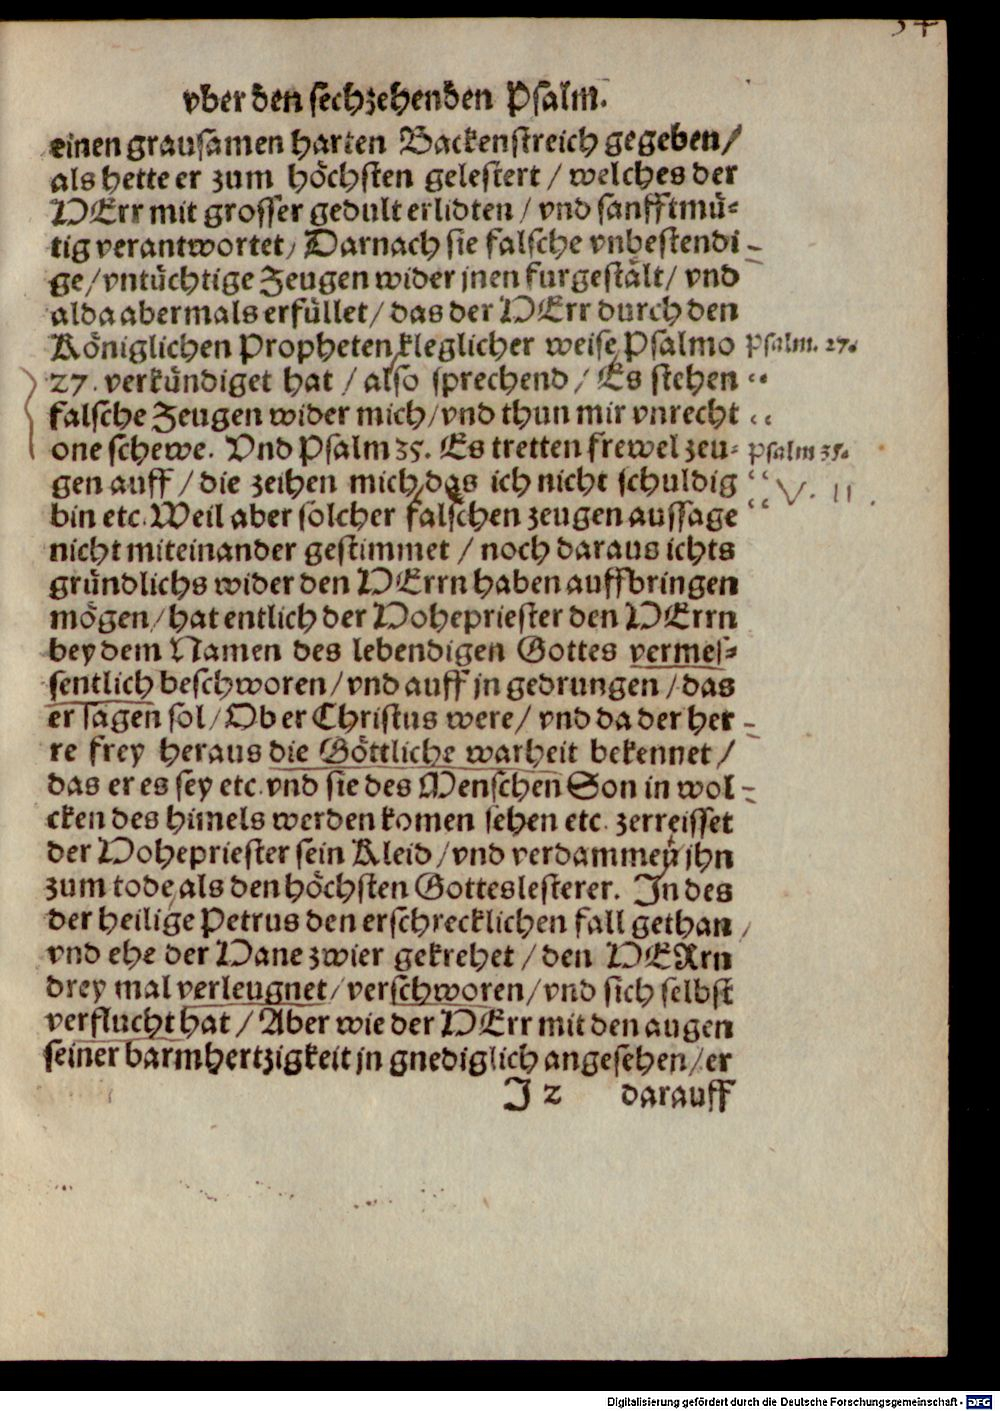 54
vber den sechzehenden Psalm.
einen grausamen harten Backenstreich gegeben/
als hette er zum höchsten gelestert / welches der
HErr mit grosser gedult erlidten / vnd sanfftmü-
tig verantwortet/ Darnach sie falsche vnbestendi-
ge/ vntüchtige Zeugen wider jnen furgestält/ vnd
alda abermals erfüllet/ das der HErr durch den
Königlichen Propheten kleglicher weise Psalmo
Psalm. 27.
27. verkündiget hat / also sprechend / Es stehen
falsche Zeugen wider mich/ vnd thun mir vnrecht
one schewe. Vnd Psalm 35. Es tretten frewel zeu-
Psalm 35.
gen auff / die zeihen mich, das ich nicht schuldig
V. 11.
bin etc. Weil aber solcher falschen zeugen aussage
nicht miteinander gestimmet / noch daraus ichts
gründlichs wider den HErrn haben auffbringen
mögen/ hat entlich der Hohepriester den HErrn
bey dem Namen des lebendigen Gottes vermes-
sentlich beschworen/ vnd auff jn gedrungen / das
er sagen sol/ Ob er Christus were/ vnd da der her-
re frey heraus die Göttliche warheit bekennet/
das er es sey etc. vnd sie des Menschen Son in wol-
cken des himels werden komen sehen etc. zerreisset
der Hohepriester sein Kleid / vnd verdammen jhn
zum tode, als den höchsten Gotteslesterer. In des
der heilige Petrus den erschrecklichen fall gethan/
vnd ehe der Hane zwier gekrehet / den HERrn
drey mal verleugnet/ verschworen/ vnd sich selbst
verflucht hat / Aber wie der HErr mit den augen
seiner barmhertzigkeit jn gnediglich angesehen/ er
J 2 darauff
Digitalisierung gefördert durch die Deutsche Forschungsgemeinschaft - DFG